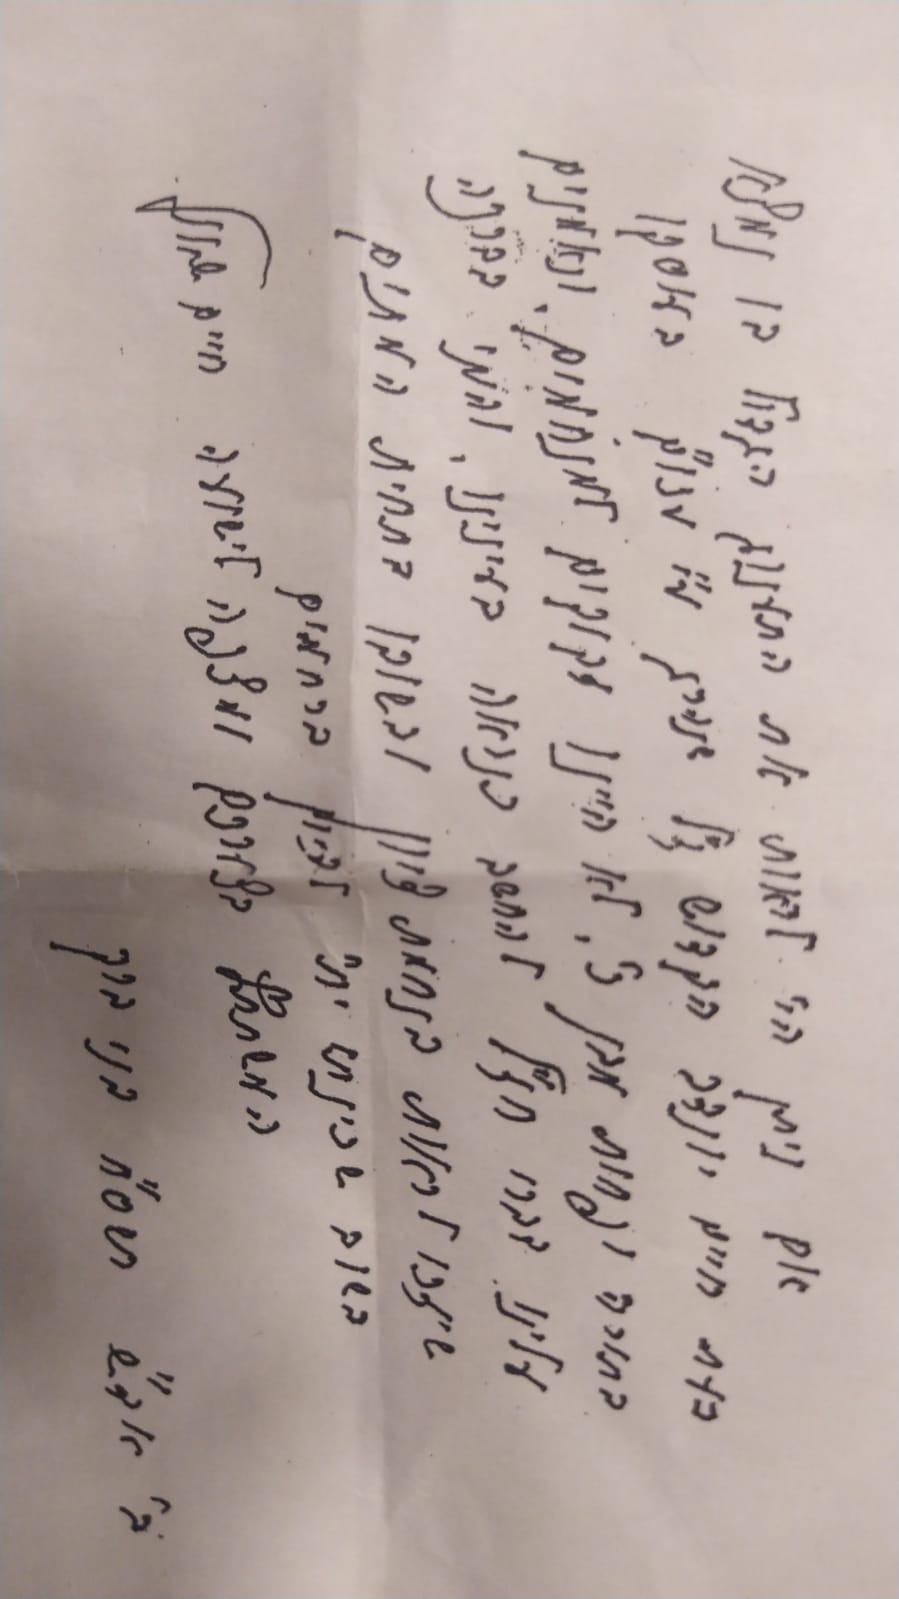 אם ניתן הי' לראות את התענוג הגדול בו נמצא
כעת חיים יונדב הקדוש ז"ל שנהרג ע"י עכו"ם בעוסקו
בתורה ופחות מבן כ', לא היינו זקוקים למנחמים, ונאמנים
עלינו דברי חז"ל להחשב כנראה בעינינו, והנני בברכה
שיזכו לראות בנחמת ציון ובשובו בתחית המתים
בשוב שכינתו ית' לציון ברחמים
המשתתף בצערכם ומצפה לישועה חיים
ב' אד"ש תשס"ח בני ברק